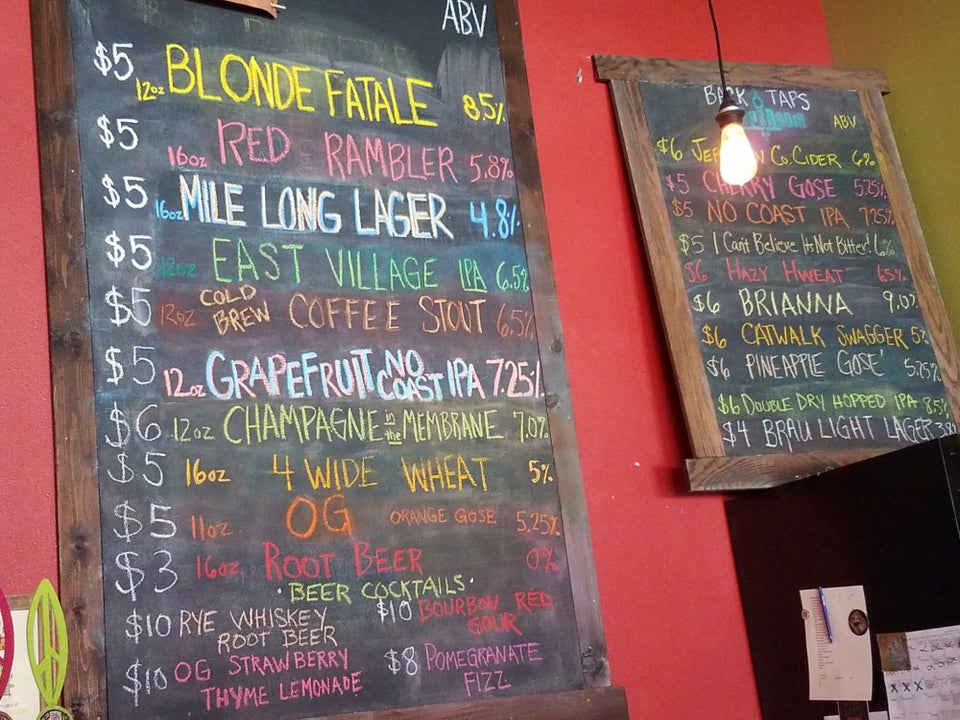 ABV
$5 12oz BLONDE FATALE 8.5%
$5 16oz RED RAMBLER 5.8%
$5 16oz MILE LONG LAGER 4.8%
$5 12oz EAST VILLAGE IPA 6.5%
$5 12oz COLD BREW COFFEE STOUT 6.5%
$5 12oz GRAPEFRUIT NO COAST IPA 7.25%
$6 12oz CHAMPAGNE in the MEMBRANE 7.0%
$5 16oz 4 WIDE WHEAT 5%
$5 11oz OG ORANGE GOSE 5.25%
$3 16oz ROOT BEER 0%
· BEER COCKTAILS ·
$10 RYE WHISKEY ROOT BEER
$10 BOURBON RED SOUR
$10 OG STRAWBERRY THYME LEMONADE
$8 POMEGRANATE FIZZ
TAPS
ABV
$6 CO. CIDER 6%
$5 CHERRY GOSE 5.25%
$5 NO COAST IPA 7.25%
$5 I Can't Believe Its Not Bitter! 6%
$6 HAZY HWEAT 6.5%
$6 BRIANNA 9.0%
$6 CATWALK SWAGGER 5%
$6 PINEAPPLE GOSE 5.25%
$6 DOUBLE DRY HOPPED IPA 8.5%
$4 BRAU LIGHT LAGER 3.8
XXX